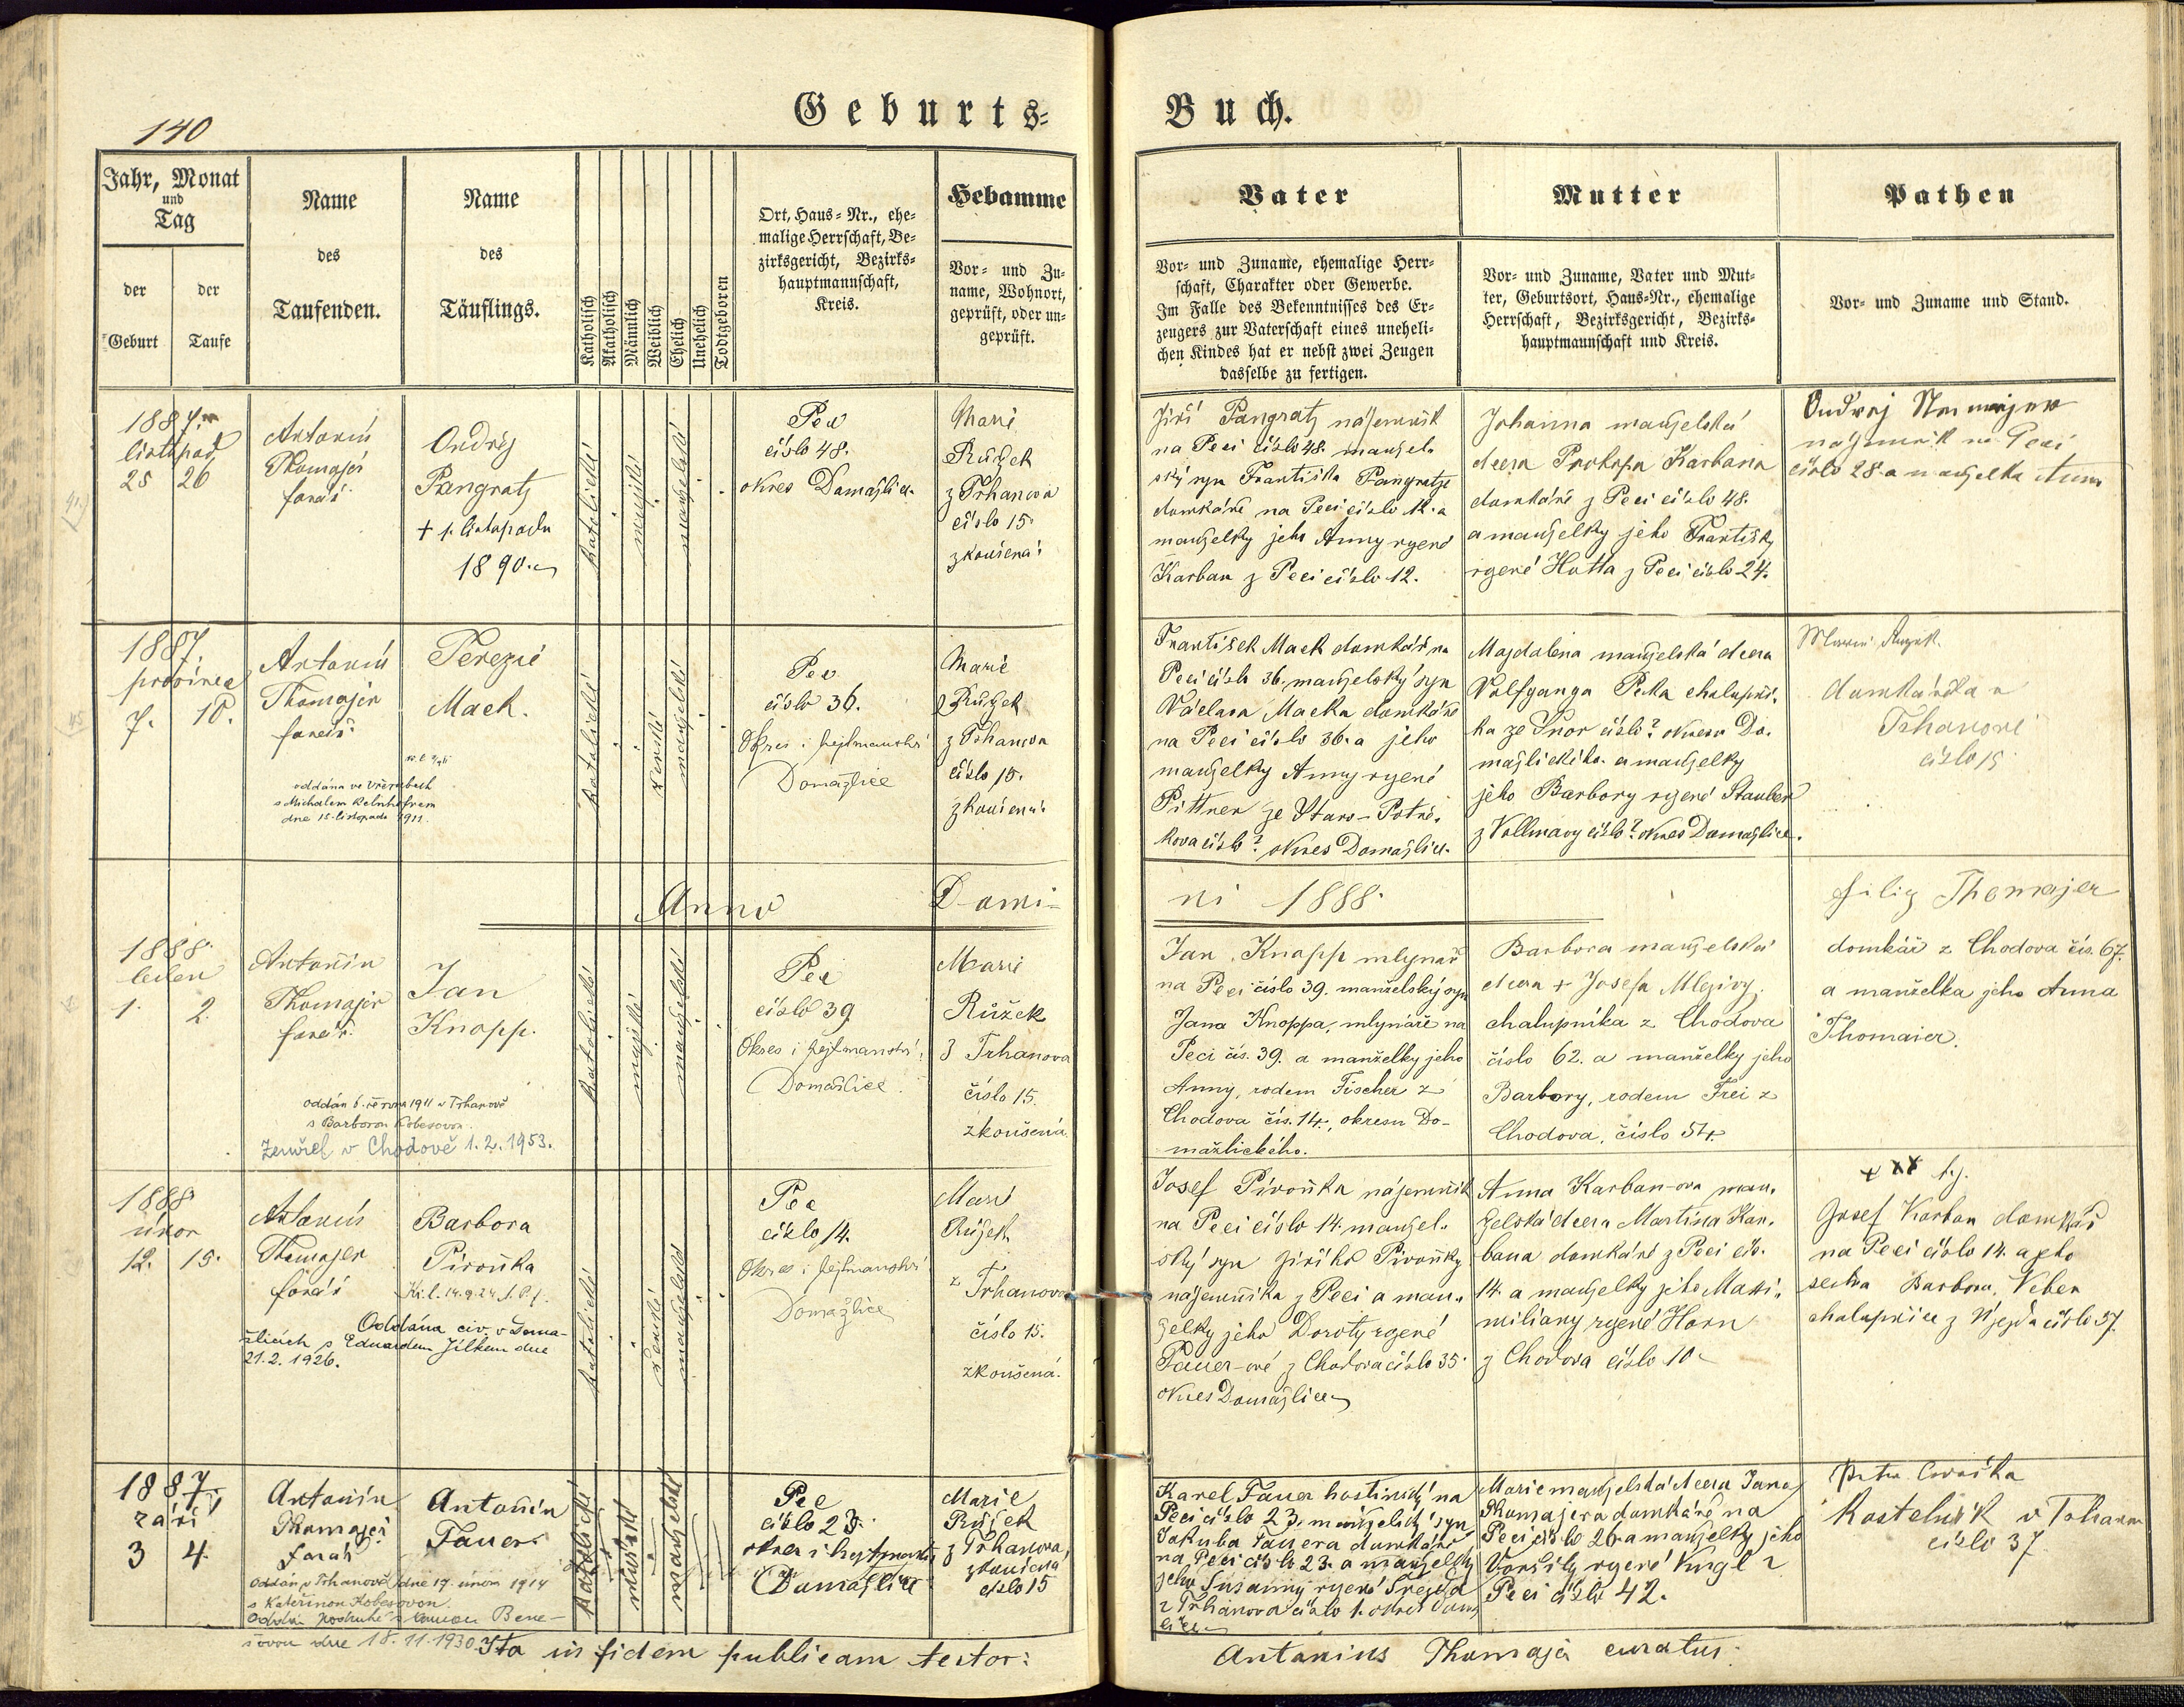 140
Geburts-Buch.
Jahr, Monat
und
Tag
der
Geburt
der
Taufe
Name
des
Taufenden.
Name
des
Täuflings.
Katholisch
Akatholisch
Männlich
Weiblich
Ehelich
Unehelich
Todtgeboren
Ort, Haus-Nr., ehe-
malige Herrschaft, Be-
zirksgericht, Bezirks-
hauptmannschaft,
Kreis.
Hebamme
Vor- und Zu-
name, Wohnort,
geprüft, oder un-
geprüft.
Vater
Vor- und Zuname, ehemalige Herr-
schaft, Charakter oder Gewerbe.
Im Falle des Bekenntnisses des Er-
zeugers zur Vaterschaft eines uneheli-
chen Kindes hat er nebst zwei Zeugen
dasselbe zu fertigen.
Mutter
Vor- und Zuname, Vater und Mut-
ter, Geburtsort, Haus-Nr., ehemalige
Herrschaft, Bezirksgericht, Bezirks-
hauptmannschaft und Kreis.
Pathen
Vor- und Zuname und Stand.
1887
listopad
25 26
Antonín
Thomajer
farář
Ondřej
Pangratz
+ 1. listopadu
1890.
katolické
mužské
manželské
Pec
číslo 48.
okres Domažlice
Marie
Růžek
z Trhanova
číslo 15.
zkoušená
Jiří Pangratz nájemník
na Peci číslo 48. manžel-
ský syn Františka Pangratze
domkáře na Peci číslo 12. a
manželky jeho Anny rozené
Karban z Peci číslo 12.
Johanna manželská
dcera Prokopa Karbana
domkáře z Peci číslo 48.
a manželky jeho Františky
rozené Hutta z Peci číslo 24.
Ondřej
nájemník na Peci
číslo 28. a manželka Anna
1887.
prosinec
7. 10.
Antonín
Thomajer
farář
Terezie
Mack.
oddána ve Všerubech
s Michalem Kelnhofrem
dne 15. listopadu 1911.
katolické
ženské
manželské
Pec
číslo 36.
Okres i hejtmanství
Domažlice
Marie
Růžek
z Trhanova
číslo 15.
zkoušená
František Mack domkář na
Peci číslo 36. manželský syn
Václava Macka domkáře
na Peci číslo 36. a jeho
manželky Anny rozené
Pittner ze Staro-Potně-
kova číslo? okres Domažlice.
Magdalena manželská dcera
Volfganga Peka chalupní-
ka ze Pnor číslo? okresu Do-
mažlického. a manželky
jeho Barbory rozené Stauber
z Vollmavy číslo? okres Domažlice.
Marie
domkářka v
Trhanově
číslo 15
Anno Domi-
ni 1888.
1888.
leden
1. 2.
Antonín
Thomajer
farář.
Jan
Knopp.
oddán 6. června 1911 v Trhanově
s Barborou Kobesovou.
Zemřel v Chodově 1.2.1953.
katolické
mužské
manželské
Pec
číslo 39
Okres i hejtmanství
Domažlice.
Marie
Růžek
z Trhanova
číslo 15.
zkoušená
Jan Knopp mlynář
na Peci číslo 39. manželský syn
Jana Knoppa, mlynáře na
Peci čís. 39. a manželky jeho
Anny, rodem Fischer z
Chodova čís. 14., okresu Do-
mažlického.
Barbora manželská
dcera + Josefa Mlezivy.
chalupníka z Chodova
číslo 62. a manželky jeho
Barbory, rodem Frei z
Chodova, číslo 54.
Filip Thomajer
domkář z Chodova čís. 67.
a manželka jeho Anna
Thomaier.
1888
únor
12. 15.
Antonín
Thomajer
farář
Barbora
Pivoňka
Oddána civ. v Doma-
žlicích s Eduardem Jílkem dne
21.2.1926.
katolické
ženské
manželské
Pec
číslo 14.
Okres i hejtmanství
Domažlice
Marie
Růžek
z Trhanova
číslo 15.
zkoušená.
Josef Pivoňka nájemník
na Peci číslo 14. manžel-
ský syn Jiřího Pivoňky
nájemníka z Peci a man-
želky jeho Doroty rozené
Tauer-ové z Chodova číslo 35.
okres Domažlice
Anna Karban-ova man-
želská dcera Martina Kar-
bana domkáře z Peci čís.
14. a manželky jeho Maxi-
miliany rozené Horn
z Chodova číslo 10
+ xx
Josef Karban domkář
na Peci číslo 14. a jeho
sestra Barbora Veber
chalupnice z Újezda číslo 57.
1887.
září
3 4.
Antonín
Thomajer
farář
Antonín
Tauer
Oddán v Trhanově dne 17. února 1914
s Kateřinou Kobesovou.
Oddán podruhé s Annou Bene-
šovou dne 18.11.1930
katolické
mužské
manželské
Pec
číslo 23.
okres i hejtmanství
Domažlice
Marie
Růžek
z Trhanova,
zkoušená
číslo 15
Karel Tauer hostinský na
Peci číslo 23. manželský syn
Jakuba Tauera domkáře
na Peci číslo 23. a manželky
jeho Susanny rozené
z Trhanova číslo 1. okres Domaž-
lice
Marie manželská dcera Jana
Thomajera domkáře na
Peci číslo 26. a manželky jeho
Voršily rozené Kugl z
Peci číslo 42.
Petr
Kostelník v Trhanově
číslo 37
Ita in fidem publicam testor:
Antonius Thomajer curatus.